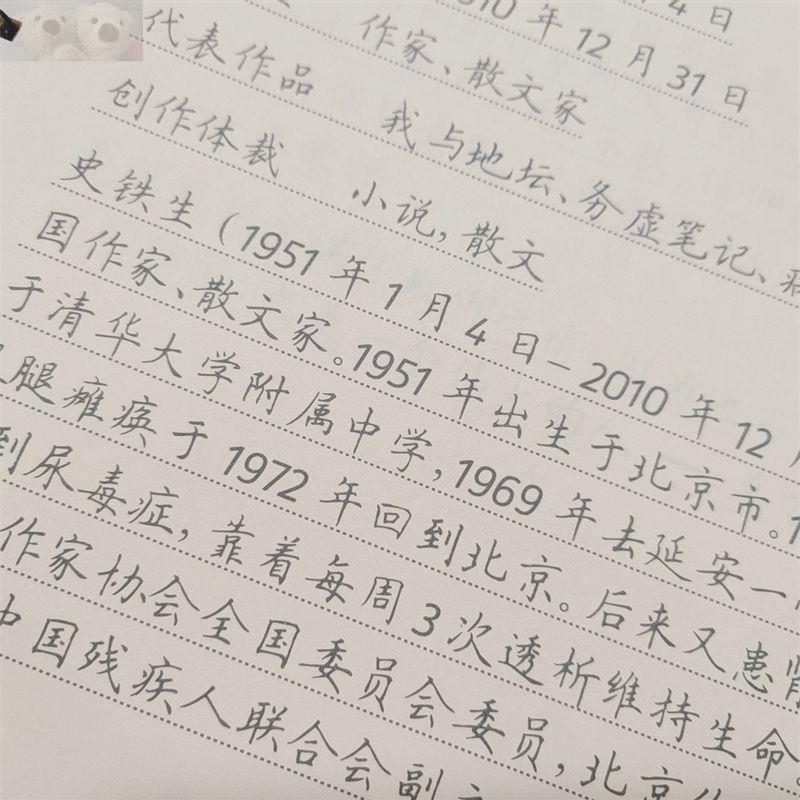 4日
10年12月31日
作家、散文家
代表作品 我与地坛、务虚笔记、病
创作体裁 小说,散文
史铁生(1951年1月4日-2010年12月
国作家、散文家。1951年出生于北京市。1
于清华大学附属中学,1969年去延安一
腿瘫痪于1972年回到北京。后来又患肾
到尿毒症,靠着每周3次透析维持生命。
作家协会全国委员会委员,北京作
中国残疾人联合会副主